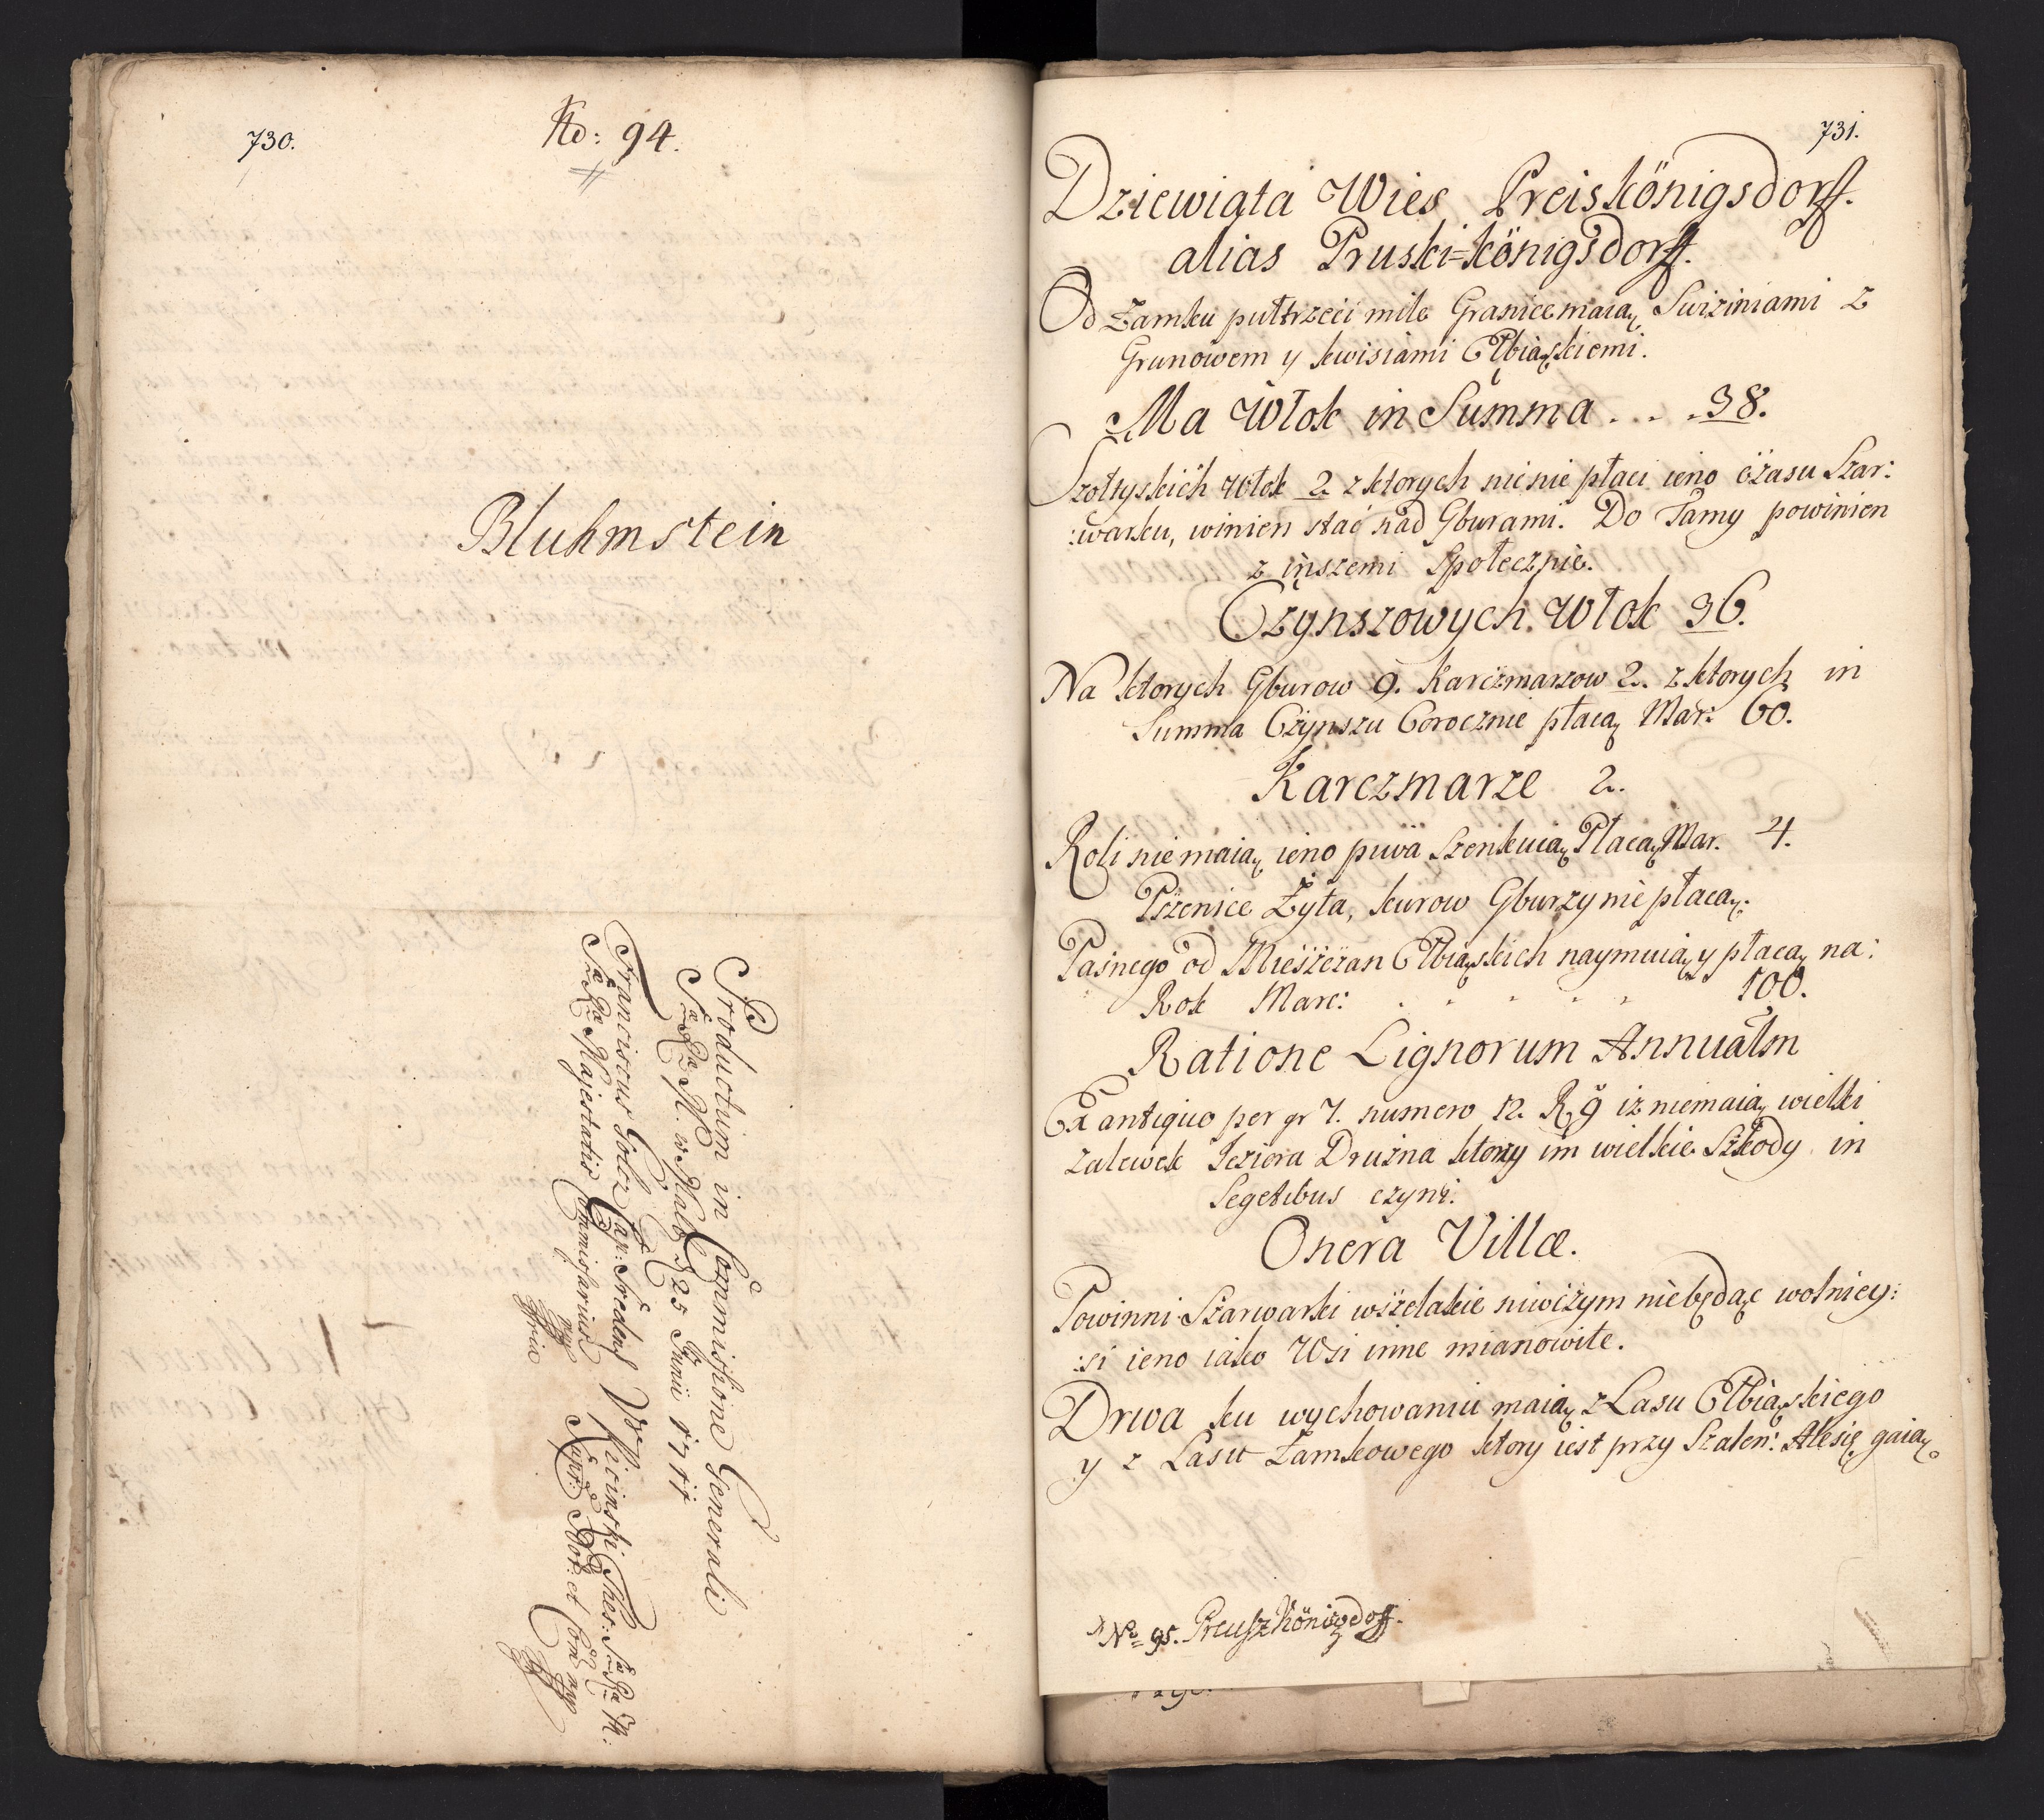 730.
No: 94.
Bluhmstein
Productum in Commissione Generali
S. R. M. w Malb: d 25 Junii 1711
Franciscus Goltz Cap: Sreden
S. R. Majestatis Commissarius
mpp
Thes: S. R. M.
Not: et Com: mpp
731.
Dziewiąta Wies Preiskönigsdorff.
alias Pruski=königsdorff.
Od Zamku pułtrzeci mile Granice maią Swiziniami z
Grunowem y kwisiami Elbiąskiemi.
Ma Włok in Summa . . . . 38.
Szołtyskich Włok 2. z ktorych nic nie płaci ieno czasu Szar:
:warku, winien stać nad Gburami. Do Tamy powinien
z inszemi Społecznie.
Czynszowych Włok 36.
Na ktorych Gburow 9. Karczmarzow 2. z ktorych in
Summa Czynszu Corocznie płacą Mar: 60.
Karczmarze 2.
Roli nie maią ieno piwa Szenkuią Płacą Mar. 4.
Pszenice Żyta, kurow Gburzy nie płacą.
Paśnego od Mieszczan Elbiąskich naymuią y płacą na:
Rok Marc: . . . . . 100.
Ratione Lignorum Annuatm
Ex antiquo per gr 7. numero 12. R g iz niemaią wielki
zalewek Jeziora Druzna ktory im wielkie Szkody in
Segetibus czyni.
Onera Villæ.
Powinni Szarwarki wszelakie niwczym nie będąc wolniey:
:si ieno iako Wsi inne mianowite.
Drwa ku wychowaniu maią z Lasu Elbiąskiego
y z Lasu Zamkowego ktory iest przy Szalen: Ale się gaią.
No 95. Preusz Königsdorff.